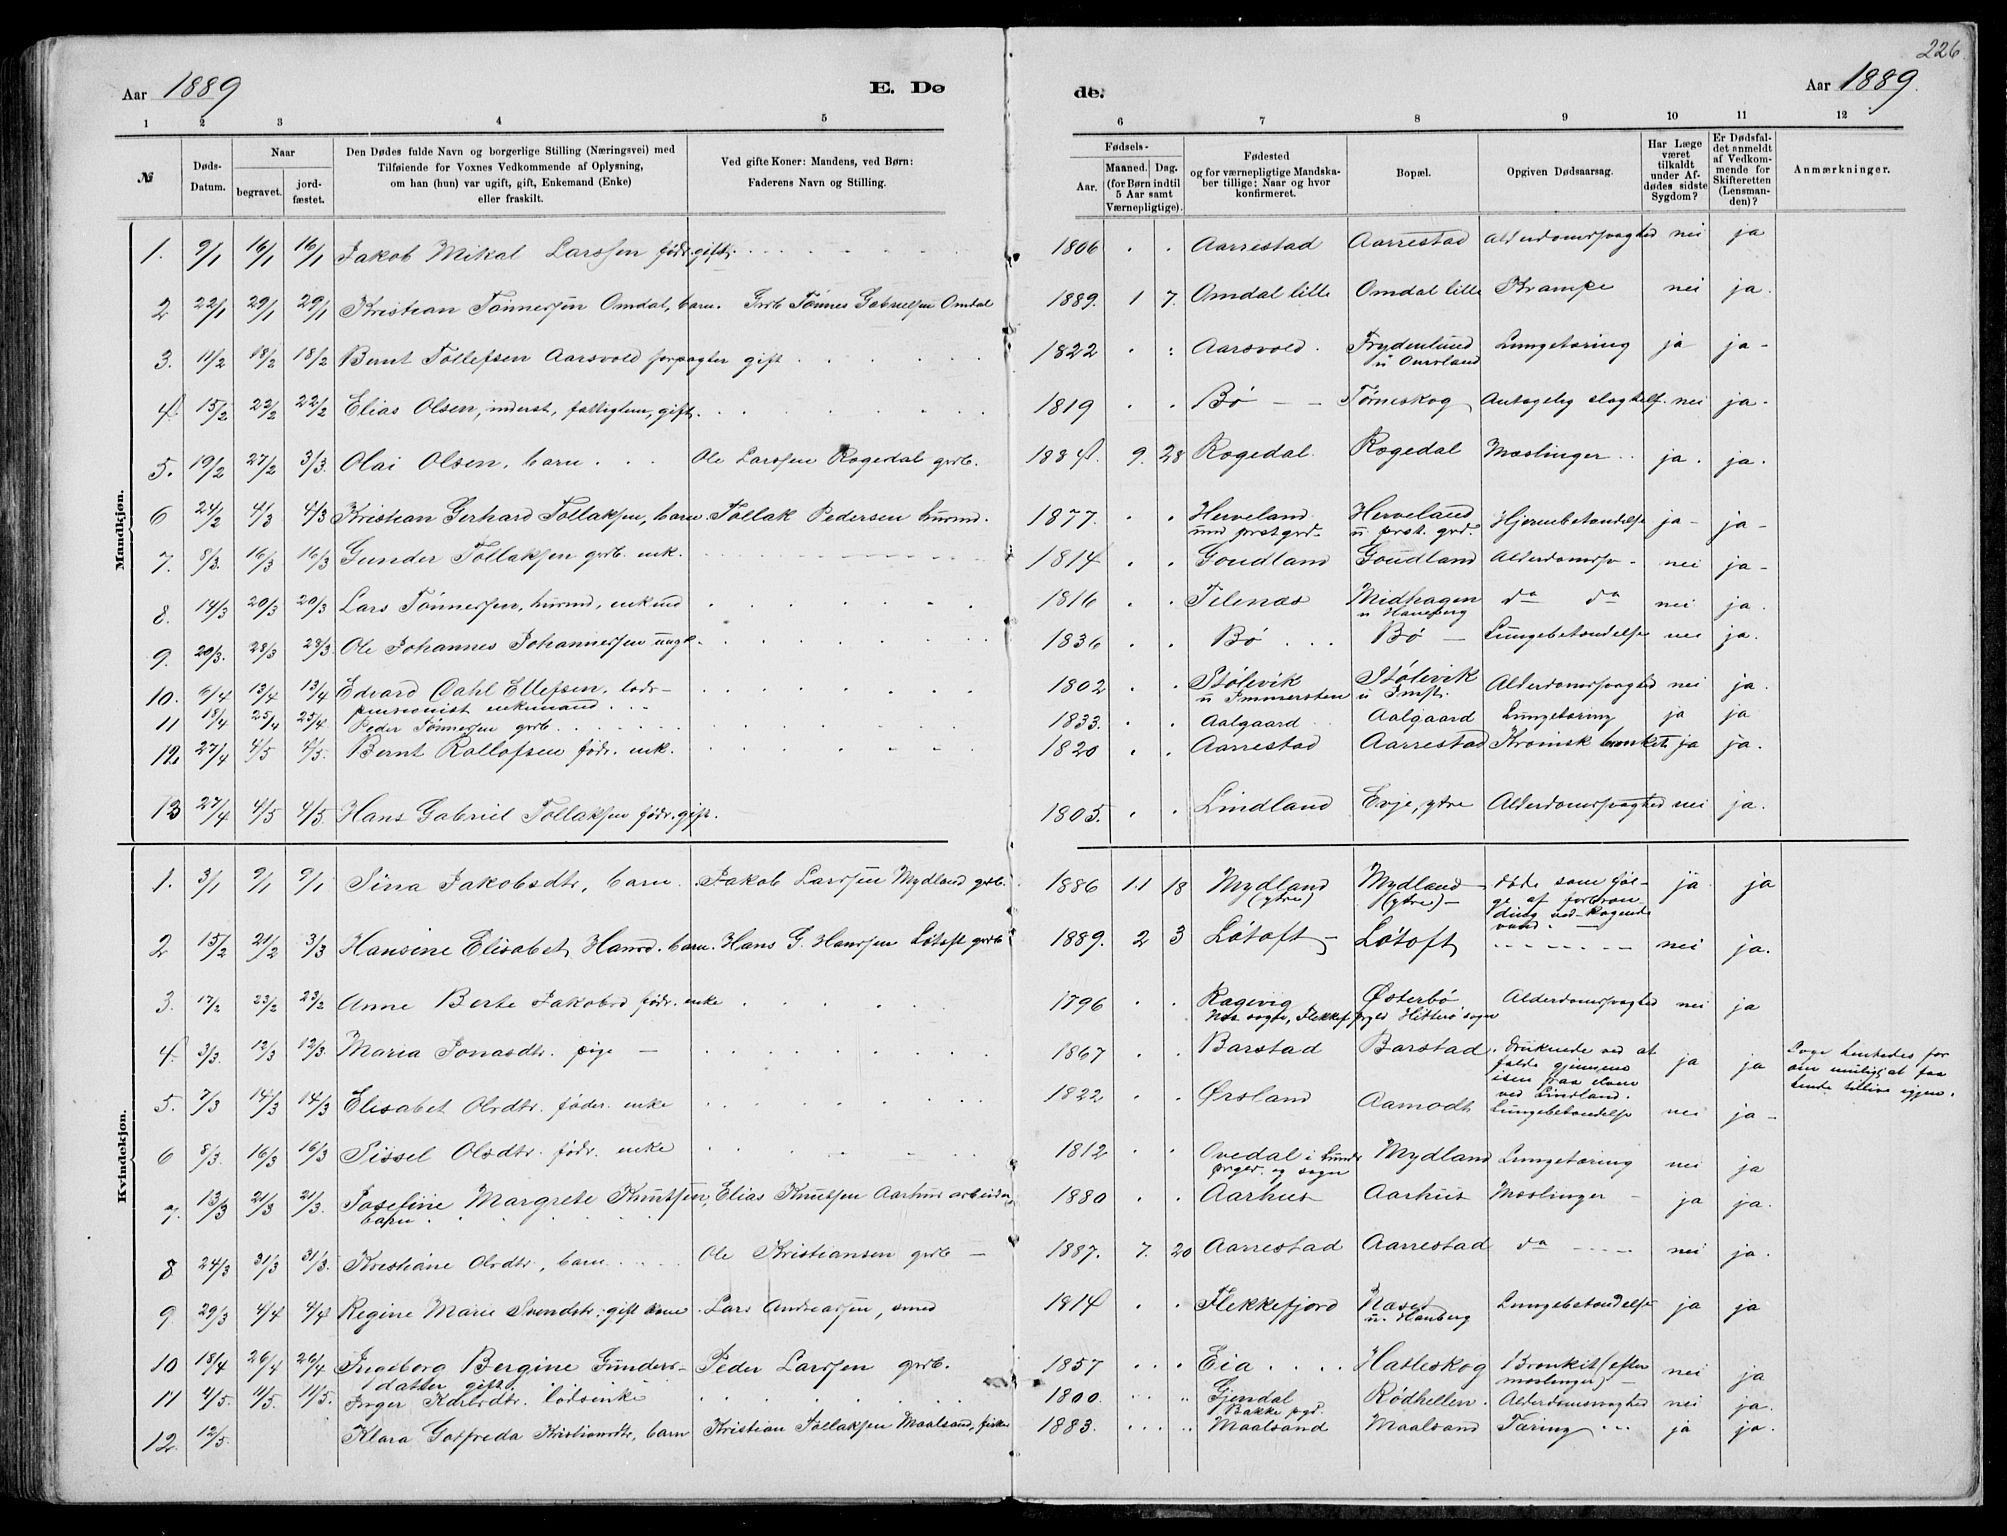 226
Aar 1889 E. Dø
de. Aar 1889.
1 2 3 4 5 6 7 8 9 10 11 12
№ Døds-Datum. Naar begravet. jord-fæstet. Den Dødes fulde Navn og borgerlige Stilling (Næringsvei) med Tilføiende for Voxnes Vedkommende af Oplysning, om han (hun) var ugift, gift, Enkemand (Enke) eller fraskilt. Ved gifte Koner: Mandens, ved Børn: Faderens Navn og Stilling. Fødsels- Aar. Maaned. Dag. (for Børn indtil 5 Aar samt Værnepligtige). Fødested og for værnepligtige Mandskaber tillige: Naar og hvor konfirmeret. Bopæl. Opgiven Dødsaarsag. Har Læge været tilkaldt under Afdødes sidste Sygdom? Er Dødsfaldet anmeldt af Vedkommende for Skifteretten (Lensmanden)? Anmærkninger.
Mandkjøn.
1. 9/1 16/1 16/1 Jakob Mikal Larssen fødr. gift. 1806 Aarrestad Aarrestad Alderdomssvaghed nei ja
2 22/1 29/1 29/1 Kristian Tønnessen Omdal, barn. Grdb Tønnes Gabrielsen Omdal 1889. 1 7. Omdal lille Omdal lille Krampe nei ja.
3. 11/2 18/2 18/2 Bernt Tollefsen Aarsvold forpagter gift 1822 Aarsvold. Frydenlund u Aursland Lungetæring ja ja-
4. 15/2 22/2 22/2 Elias Olsen, inderst, fattiglem, gift. 1819 Bø Tørneskog Antagelig slagtilf. nei ja-
5. 19/2 27/2 3/3. Olai Olsen, barn Ole Larssen Rogedal grdb. 1884. 9. 28 Rogedal. Rogedal Mæslinger ja. ja.
6 24/2 4/3 4/3 Kristian Gerhard Tollaksen, barn. Tollak Pedersen husmd. 1877. Herveland und prstgrd. Herveland u prst. grd. Hjernebetændelse ja- ja-
7. 8/3. 16/3 16/3 Gunder Tollaksen grdb. enk. 1814 Goudland Goudland Alderdomssv- nei ja-
8. 14/3 20/3 20/3 Lars Tønnessen, husmd, enkmd 1816 Telenæs Midhagen u Haneberg da da nei ja.
9. 20/3. 28/3 28/3. Ole Johannes Johannessen ungk. 1836 Bø Bø Lungebetændelse nei ja.
10. 6/4 13/4 13/4 Edvard Dahl Ellefsen, lods- pensionist enkemand 1802 Stølevik u Immersten Stølevik u Imst. Alderdomssvaghed nei ja.
11 18/4 25/4 25/4. Peder Tønnesen grdb. 1833. Aalgaard Aalgaard Lungetæring ja ja
12. 27/4 4/5 4/5. Bernt Rollofsen fødr. enk. 1820 Aarrestad Aarrestad Kronisk bronkit. ja ja.
13 27/4 4/5 4/5. Hans Gabriel Tollaksen fødr. gift. 1805. Lindland Evje, ytre Alderdomssvaghed nei ja.
Kvindekjøn.
1. 3/1 9/1 9/1 Sina Jakobsdtr, barn. Jakob Larssen Mydland grdb. 1886 11 18 Mydland (ytre) Mydland (ytre) døde som føl- ge af forbræn- ding ved kogende vand. ja ja
2 15/2 21/2 3/3 Hansine Elisabet Hansd. barn. Hans G. Hanssen Løtoft grdb 1889. 2 3 Løtoft Løtoft nei ja.
3. 17/2 23/2 23/2 Anne Berte Jakobsd fødr. enke 1796 Ragevig Næs sogn, Flekkef prgld Østerbø Hitterø sogn Alderdomssvaghed nei ja
4. 3/3. 12/3 12/3. Maria Jonasdtr. pige 1867 Barstad Barstad. Druknede ved at falde gjennem isen paa elven ved Lindland. ja ja Læge hentedes for om muligt at faa hende tillive igjen.
5. 7/3 14/3 14/3 Elisabet Olsdtr. føder. enke 1822 Ørsland Aamodt Lungebetændelse nei ja-
6 8/3. 16/3 16/3 Sissel Olsdtr. fødr. enke 1812 Ovedal i Lunds prgld. og sogn Mydland Lungetæring nei ja
7. 13/3 21/3 21/3. Josefine Margrete Knutsen, barn Elias Knutsen Aarhus arbeider 1880 Aarhus Aarhus Mæslinger ja ja.
8 24/3 31/3 31/3. Kristiane Olsdtr, barn Ole Kristiansen grdb 1887. 7. 20 Aarrestad Aarrestad da nei ja.
9 29/3 4/4 4/4 Regine Marie Svendsdtr. gift kone Lars Andreassen, smed 1814 Flekkefjord Naset u. Hanberg Lungebetændelse ja ja
10 18/4 26/4 26/4 Ingeborg Bergine Gunders- datter gift. Peder Larssen grdb. 1857 Eia Hasleskog Bronkit (efter mæslinger) nei ja
11 4/5. 11/5. 11/5. Inger Karlsdtr. lodsenke 1800. Gjendal Bakke pgd. Rødhellen. Alderdomssvaghed nei ja.
12. 12/5. Klara Gotfreda Kristiansdtr, barn Kristian Tollaksen Maalsand, fisker 1883. Maalsand Maalsand Tæring ja ja.